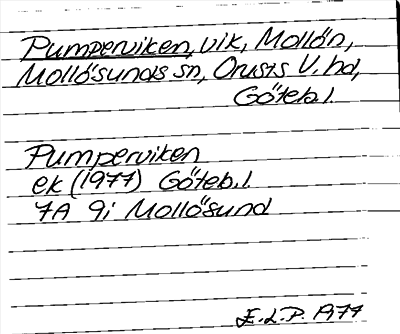 Pumperviken, vik, Mollön,
Mollösunds sn, Orusts V. hd,
Göteb.l.
Pumperviken
ek (1977) Göteb.l.
7A 9i Mollösund
E.L.P. 1977